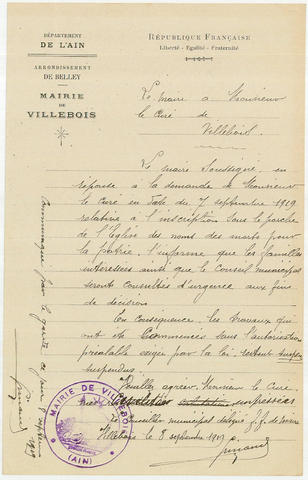 DÉPARTEMENT
DE L'AIN
ARRONDISSEMENT
DE BELLEY
MAIRIE
DE
VILLEBOIS
RÉPUBLIQUE FRANÇAISE
Liberté - Égalité - Fraternité
Le Maire a Monsieur
le Curé de
Villebois.
Le maire soussigné, en
réponse à la demande de Monsieur
le Curé en date du 7 septembre 1919
relative à l'inscription sous le porche
de l'Eglise des noms des morts pour
la patrie, l'informe que les familles
interessées ainsi que le Conseil municipal
seront consultés d'urgence aux fins
de décision
En conséquence, les travaux qui
ont été commencés sans l'autorisation
préalable exigée par la loi, restent suspen
suspendus
Veuillez agréer, Monsieur le Curé
expressions
Conseiller municipal délégué ff. de maire
Villebois le 8 septembre 1919
MAIRIE DE VILLEBOIS
(AIN)
Communiqué par le
1919